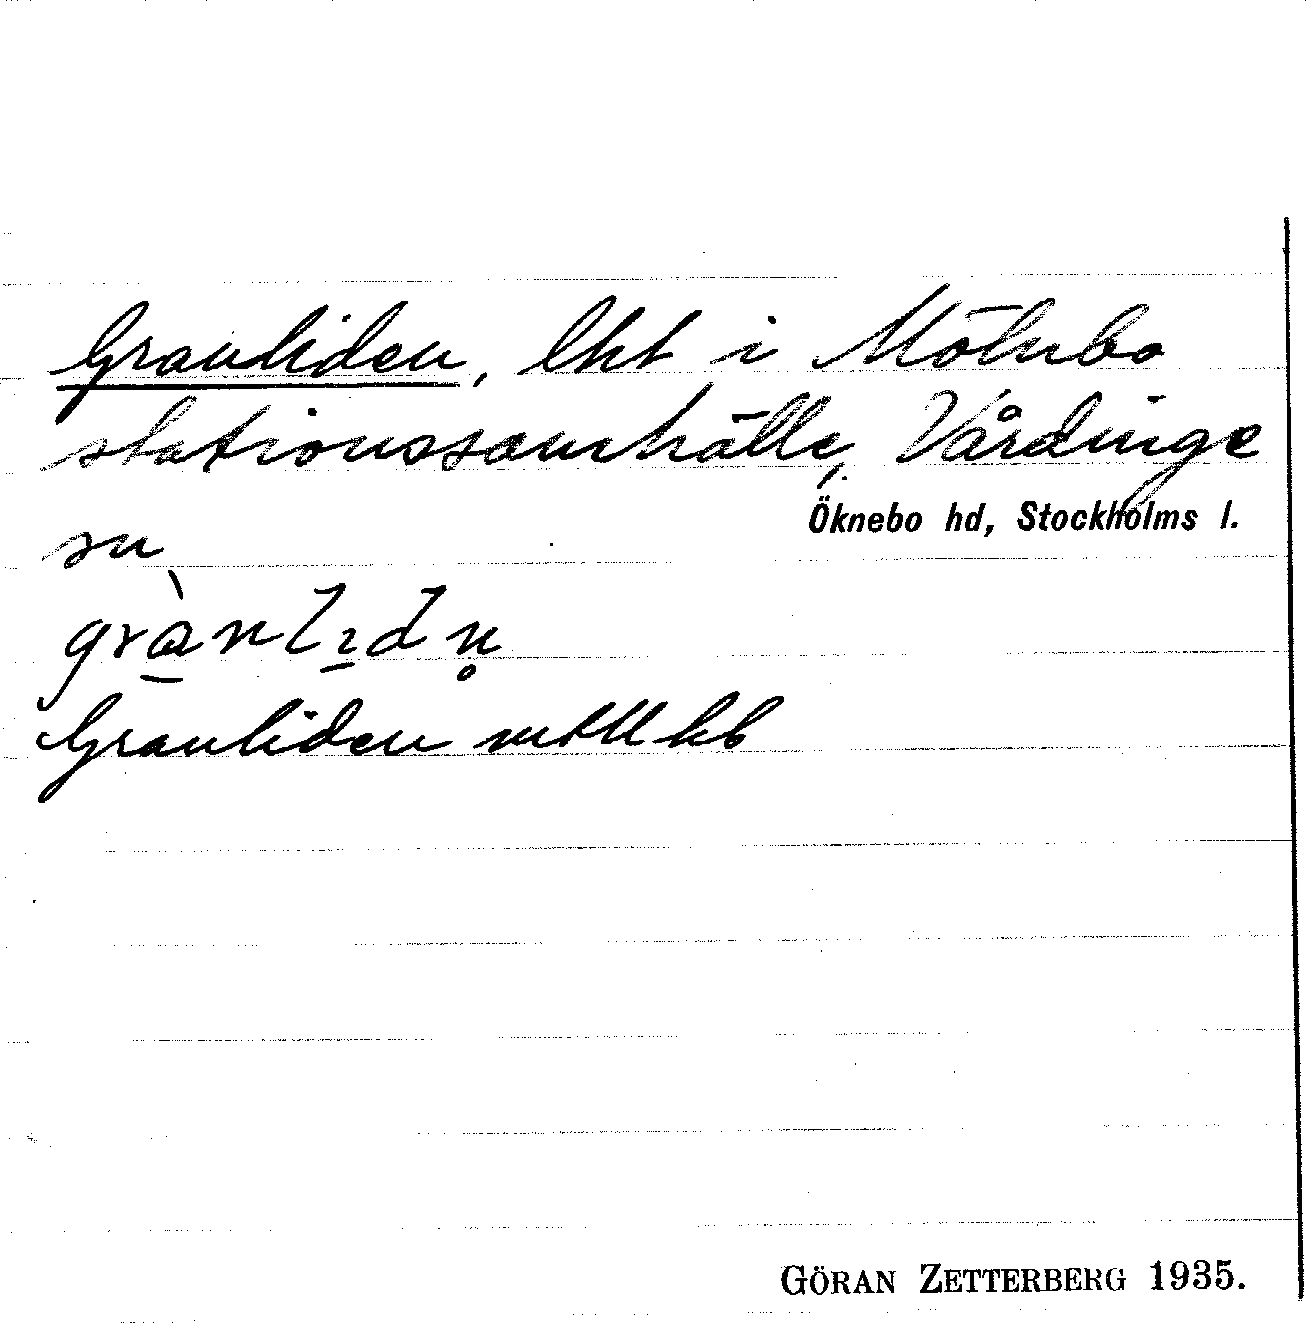 Granliden, lht i Mölnbo
stationssamhälle, Vårdinge
Öknebo hd, Stockholms l.
sn
grànlıdn̥
Granliden mtUkb
GÖRAN ZETTERBERG 1935.